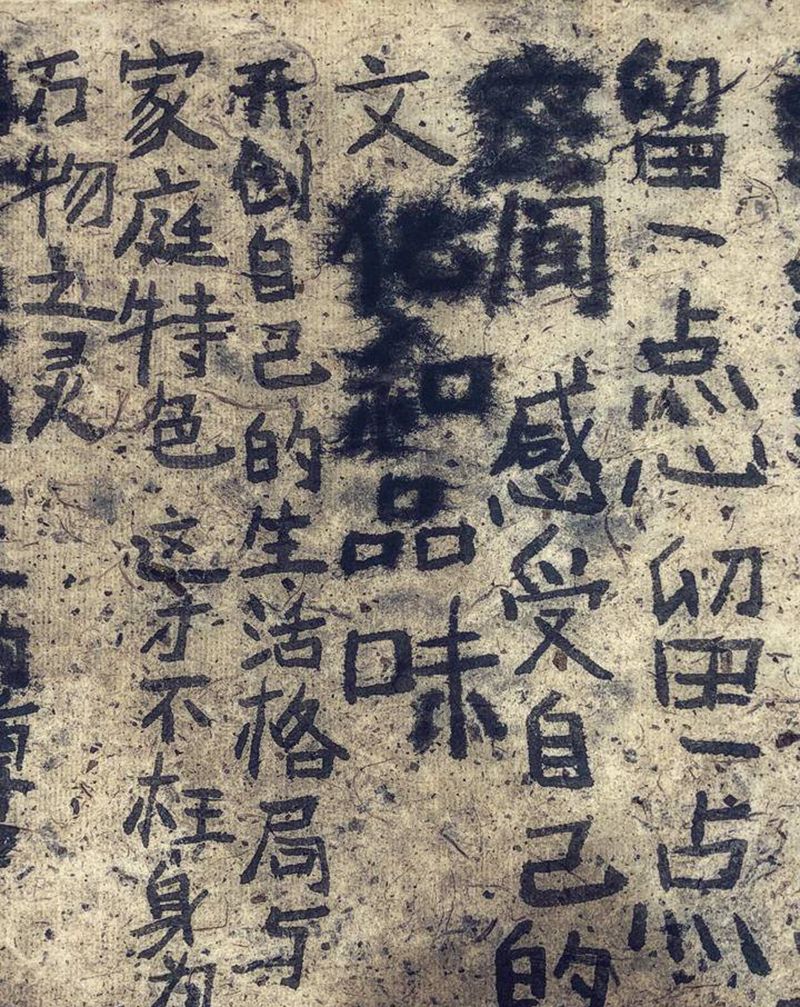 留一点心 留一点
空间 感受自己的
文化和品味
开创自己的生活格局与
家庭特色 这才不枉身为
万物之灵